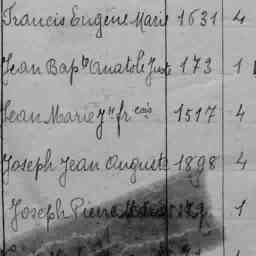 Francis Eugène Marie 1631 4
Jean Bapte Anatole Jude 173 1
Jean Marie Jh frçois 1517 4
Joseph Jean Auguste 1898 4
Joseph Pierre 1